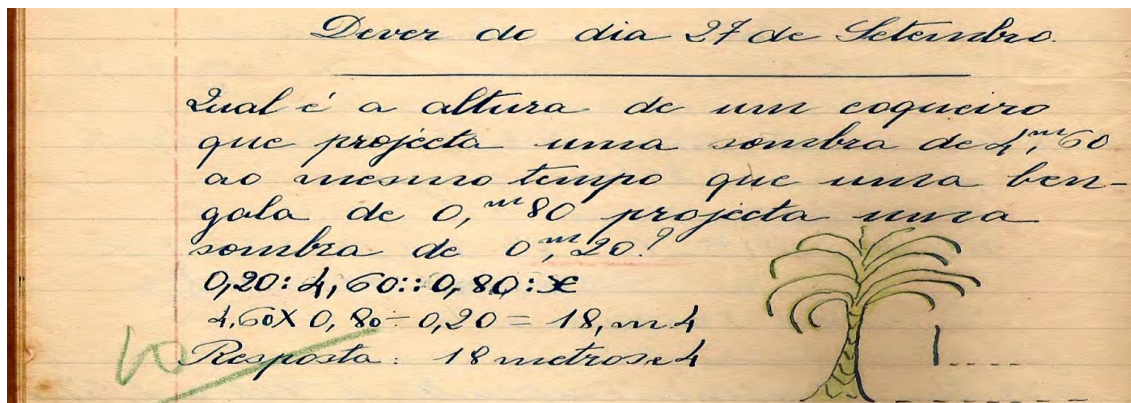 Dever do dia 27 de Setembro.
Qual é a altura de um coqueiro
que projecta uma sombra de 4,ᵐ60
ao mesmo tempo que uma ben-
gala de 0,ᵐ80 projecta uma
sombra de 0,ᵐ20?
0,20:4,60::0,80:x
4,60X0,80÷0,20=18,m4
10
Resposta: 18 metros e 4